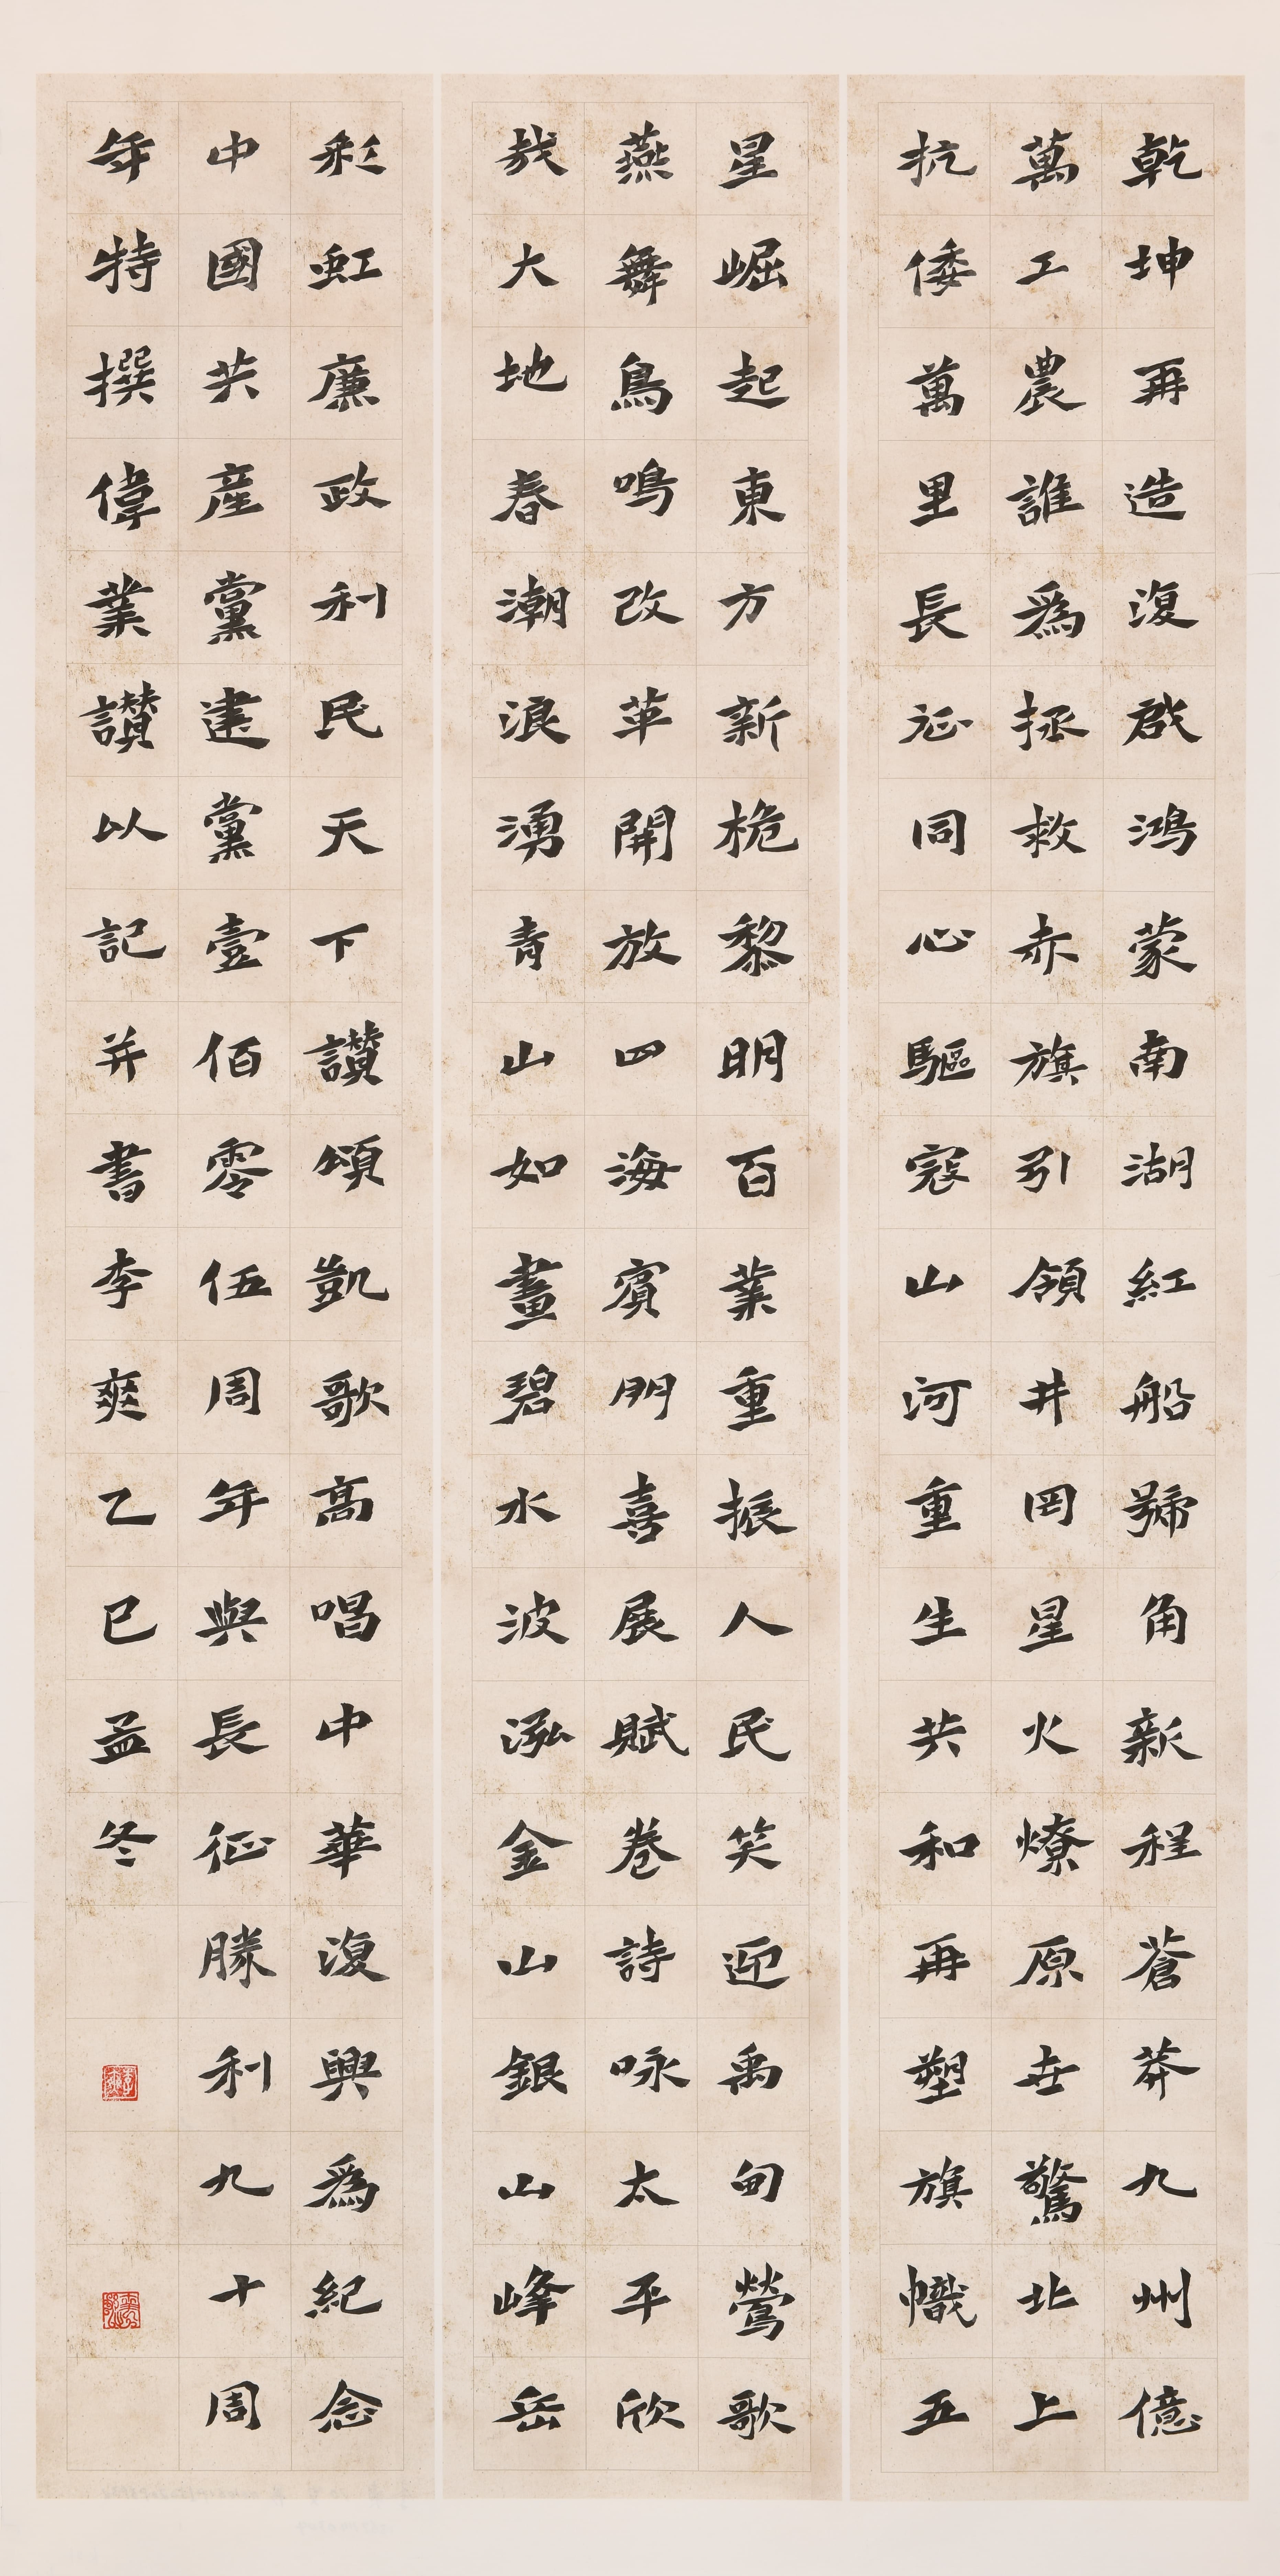 乾坤再造復啟鴻蒙南湖紅船號角新程蒼莽九州億
萬工農誰爲拯救赤旗引領井岡星火燎原去驚北上
抗倭萬里長征同心驅寇山河重生共和再塑旗幟五
星崛起東方新桅黎明百業重振人民笑迎禹甸鶯歌
燕舞鳥鳴改革開放四海賓門喜展賦卷詩咏太平欣
哉大地春潮浪湧青山如畫碧水波泓金山銀山峰岳
彩虹廉政利民天下讚頌凱歌高唱中華復興爲紀念
中國共産黨建黨壹佰零伍周年與長征勝利九十周
年特撰偉業讚以記并書李爽乙巳孟冬